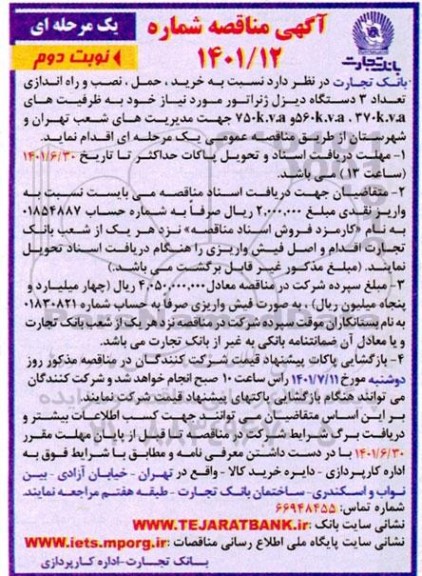 آگهی مناقصه شماره
۱۴۰۱/۱۲
یک مرحله ای
نوبت دوم
بانک تجارت
بانک تجارت در نظر دارد نسبت به خرید، حمل، نصب و راه اندازی
تعداد ۳ دستگاه دیزل ژنراتور مورد نیاز خود به ظرفیت های
۳۷۰k.va، ۵۶۰k.va و ۷۵۰k.va جهت مدیریت های شعب تهران و
شهرستان از طریق مناقصه عمومی یک مرحله ای اقدام نماید.
۱- مهلت دریافت اسناد و تحویل پاکات حداکثر تا تاریخ ۱۴۰۱/۶/۳۰
(ساعت ۱۳) می باشد.
۲- متقاضیان جهت دریافت اسناد مناقصه می بایست نسبت به
واریز نقدی مبلغ ۲,۰۰۰,۰۰۰ ریال صرفاً به شماره حساب ۰۱۸۵۴۸۸۷
به نام «کارمزد فروش اسناد مناقصه» نزد هر یک از شعب بانک
تجارت اقدام و اصل فیش واریزی را هنگام دریافت اسناد تحویل
نمایند. (مبلغ مذکور غیر قابل برگشت می باشد.)
۳- مبلغ سپرده شرکت در مناقصه معادل ۴,۰۵۰,۰۰۰,۰۰۰ ریال (چهار میلیارد و
پنجاه میلیون ریال)، به صورت فیش واریزی صرفاً به حساب شماره ۰۱۸۳۰۸۲۱
به نام بستانکاران موقت سپرده شرکت در مناقصه نزد هر یک از شعب بانک تجارت
و یا معادل آن ضمانتنامه بانکی به غیر از بانک تجارت می باشد.
۴- بازگشایی پاکات پیشنهاد قیمت شرکت کنندگان در مناقصه مذکور روز
دوشنبه مورخ ۱۴۰۱/۷/۱۱ رأس ساعت ۱۰ صبح انجام خواهد شد و شرکت کنندگان
می توانند هنگام بازگشایی پاکتهای پیشنهاد قیمت شرکت نمایند.
بر این اساس متقاضیان می توانند جهت کسب اطلاعات بیشتر و
دریافت برگ شرایط شرکت در مناقصه تا قبل از پایان مهلت مقرر
۱۴۰۱/۶/۳۰ با در دست داشتن معرفی نامه و مطابق با شرایط فوق به
اداره کارپردازی - دایره خرید کالا - واقع در تهران - خیابان آزادی - بین
نواب و اسکندری - ساختمان بانک تجارت - طبقه هفتم مراجعه نمایند.
شماره تماس: ۶۶۹۴۸۴۵۵
نشانی سایت بانک: WWW.TEJARATBANK.ir
نشانی سایت پایگاه ملی اطلاع رسانی مناقصات: WWW.iets.mporg.ir
بانک تجارت-اداره کارپردازی